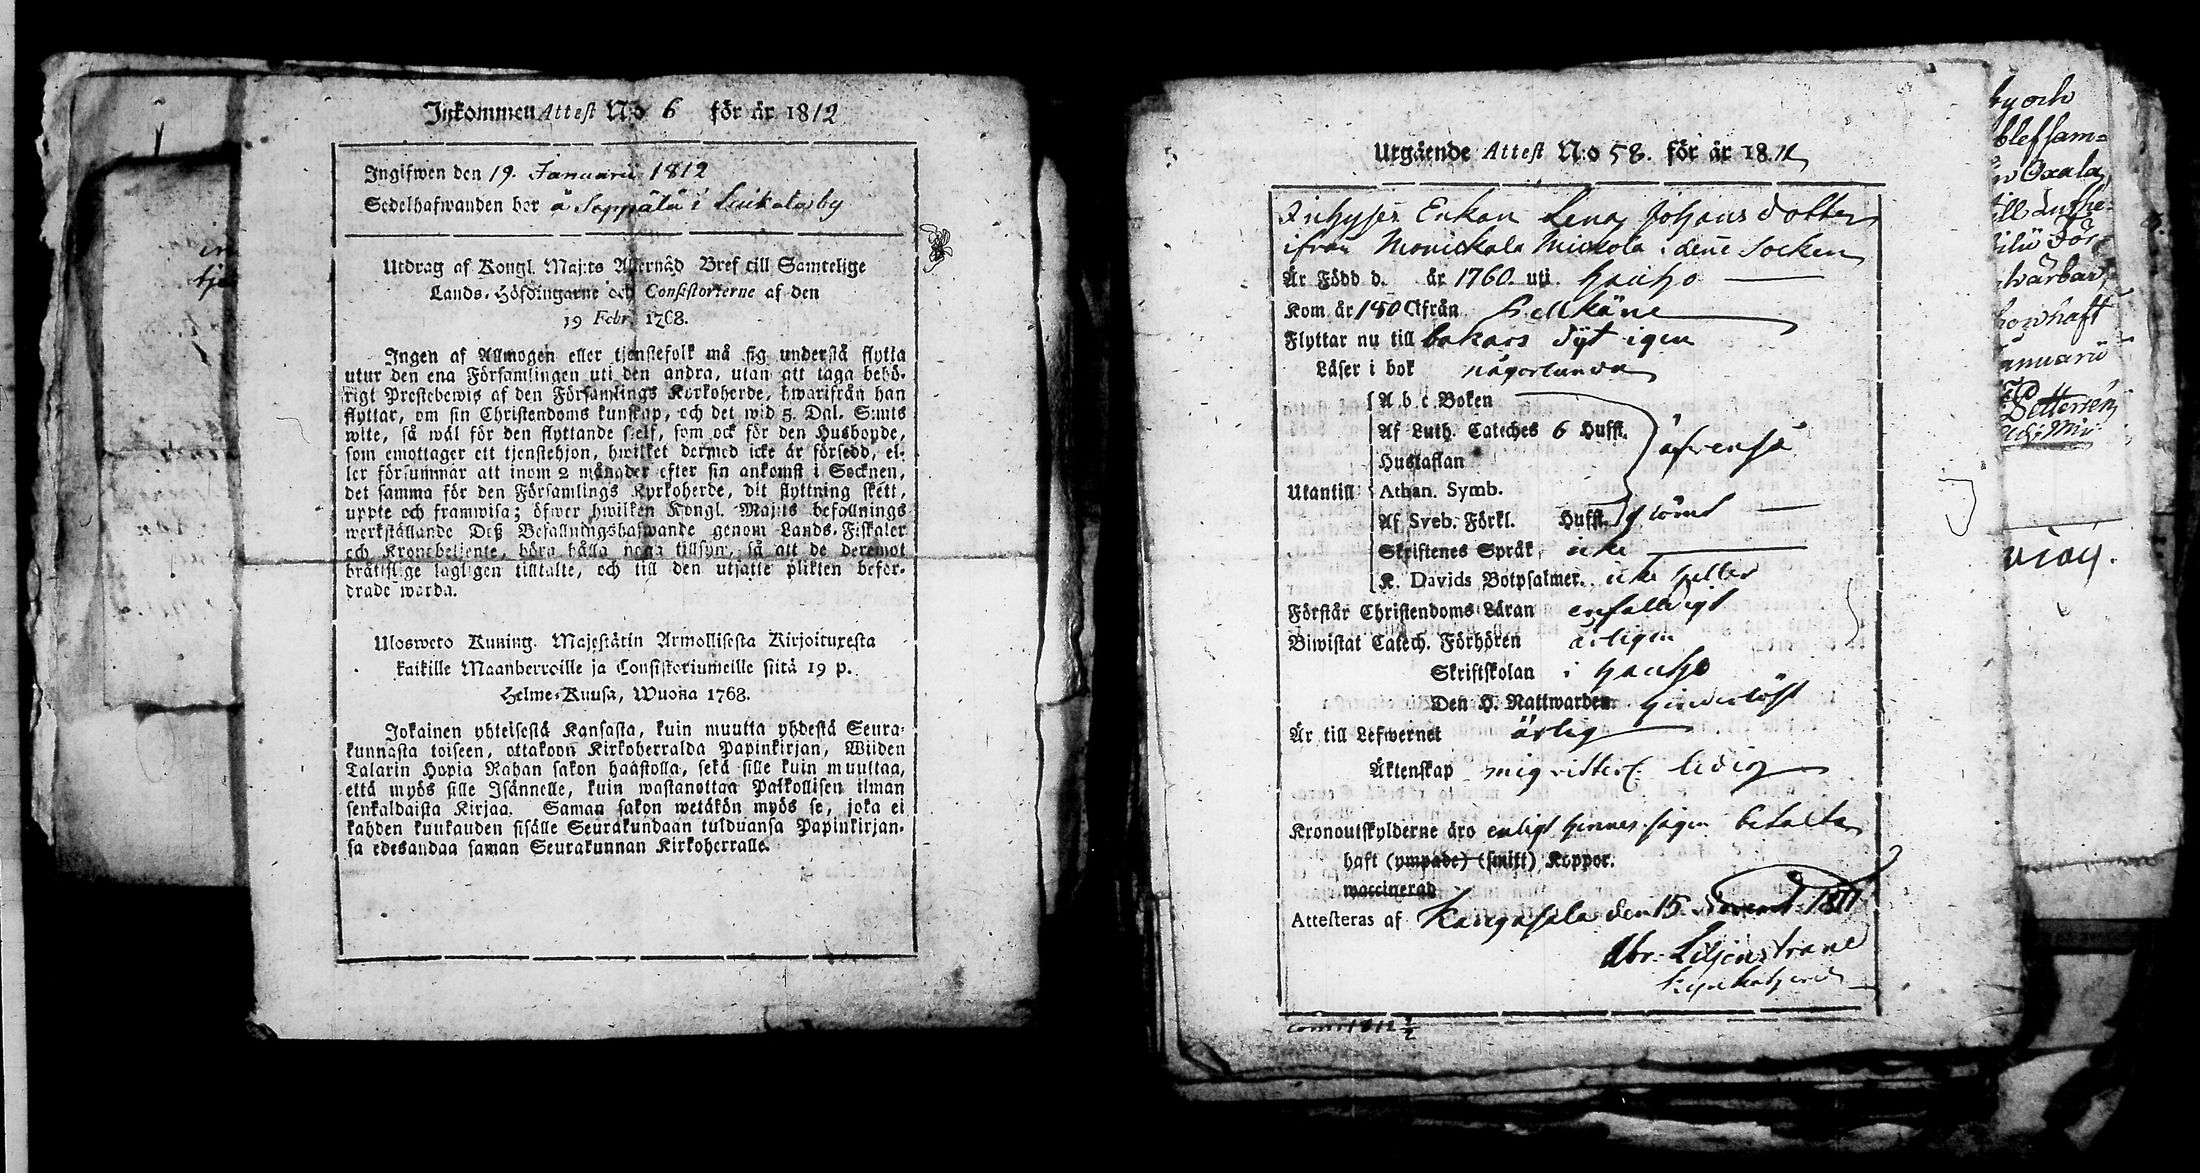 Inkommen Attest N:o 6 för år 1812
Ingifwen den 19. Januarii 1812
Sedelhafwanden bor å Seppälä i
Utdrag af Kongl. Maj:ts Allernåd Bref till Samtelige
Lands-Höfdingarne och Consistorierne af den
19 Febr. 1768.
Ingen af Allmogen eller tjenstefolk må sig understå flytta
utur den ena Församlingen uti den andra, utan att taga behö-
rigt Prestebewis af den Församlings Kyrkoherde, hwarifrån han
flyttar, om sin Christendoms kunskap, och det wid 5. Dal. S:mts
wite, så wäl för den flyttande sjelf, som ock för den Husbonde,
som emottager ett tjenstehjon, hwilket dermed icke är försedd, el-
ler försummar att inom 2 månader efter sin ankomst i Socknen,
det samma för den Församlings Kyrkoherde, dit flyttning skett,
uppte och framwisa; öfwer hwilken Kongl. Maj:ts befallnings
werkställande Deß Befallningshafwande genom Lands-Fiskaler
och Kronobetjente, böra hålla noga tillsyn, så att de deremot
bråttslige lagligen tilltalte, och till den utsatte plikten befor-
drade warda.
Ulosweto Kuning. Majestätin Armollisesta Kirjoituxesta
kaikille Maanherroille ja Consistoriumeille siitä 19 p.
Helme-Kuusa, Wuonna 1768.
Jokainen yhteisestä Kansasta, kuin muutta yhdestä Seura-
kunnasta toiseen, ottakoon Kirkoherralda Papinkirjan, Wiiden
Talarin Hopia Rahan sakon haastolla, sekä sille kuin muuttaa,
että myös sille Isännelle, kuin wastanottaa Palkollisen ilman
senkaldaista Kirjaa. Saman sakon wetäkön myös se, joka ei
kahden kuukauden sisälle Seurakundaan tulduansa Papinkirjan-
sa edesandaa saman Seurakunnan Kirkoherralle.
Utgående Attest N:o 58. för år 1811
Inhyses Enkan Lena Johansdotter
ifrån Monickala Mickola i denne Socken
Är Född d. år 1760. uti Hauho
Kom år 180 ifrån Pelkäne
Flyttar nu till bakars dyt igen
Läser i bok någorlunda
Utantill
A b c Boken
Af Luth. Cateches 6 Hufst.
Hustaflan
Athan. Symb.
äfvenså
Af Sveb. Förkl. Hufst. glömt
Skriftenes Språk icke
K. Davids Botpsalmer. icke heller
Förstår Christendoms Läran enfaldigt
Biwistat Catech. Förhören årligen
Skriftskolan i Hauho
Den H. Nattwarden hinderlöst
Är till Lefwernet ärlig
Äktenskap mig vitterl. ledig
Kronoutskylderne äro enligt hennes sägen betalta
haft (ympade) (smitt) Koppor.
waccinerad
Attesteras af Kangasala den 15. Novemb. 1811
Abr. Liljenstrand
Kyrkoherde